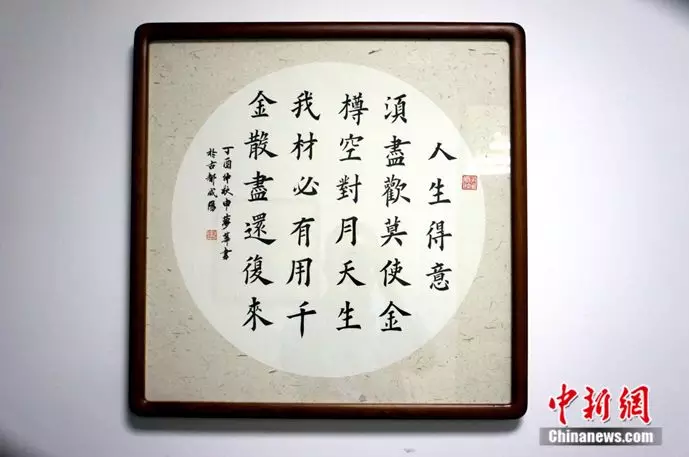 人生得意
須盡歡莫使金
樽空對月天生
我材必有用千
金散盡還復來
丁酉仲秋申夢華書
於古都咸陽
中新網
Chinanews.com